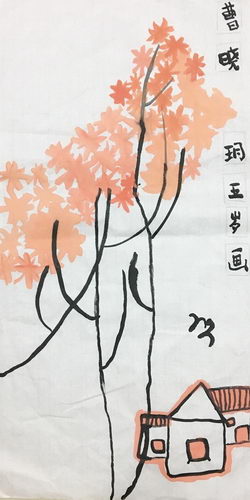 曹晓玥五岁画